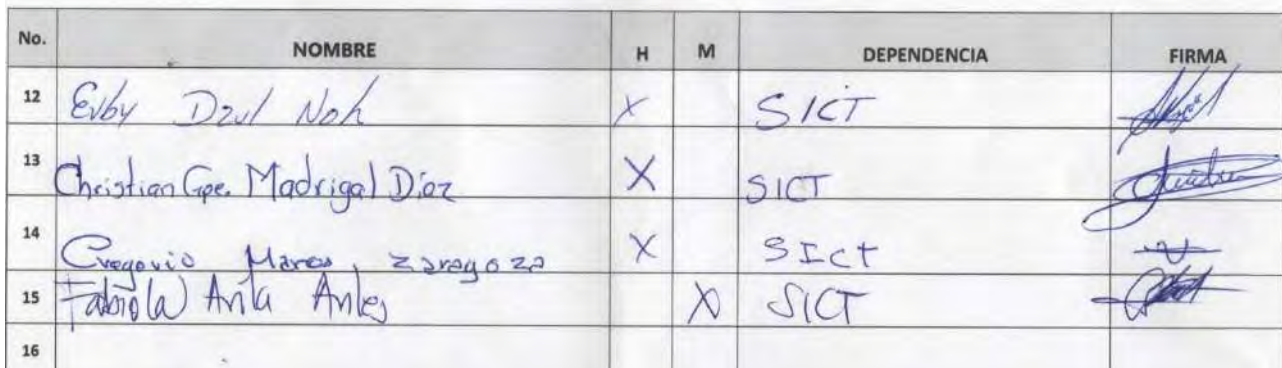 No. NOMBRE H M DEPENDENCIA FIRMA
12 Evby Dzul Noh X SICT
13 Christian Gpe. Madrigal Díaz X SICT
14 Gregorio Zaragoza X SIct
15 Fabiola X SICT
16